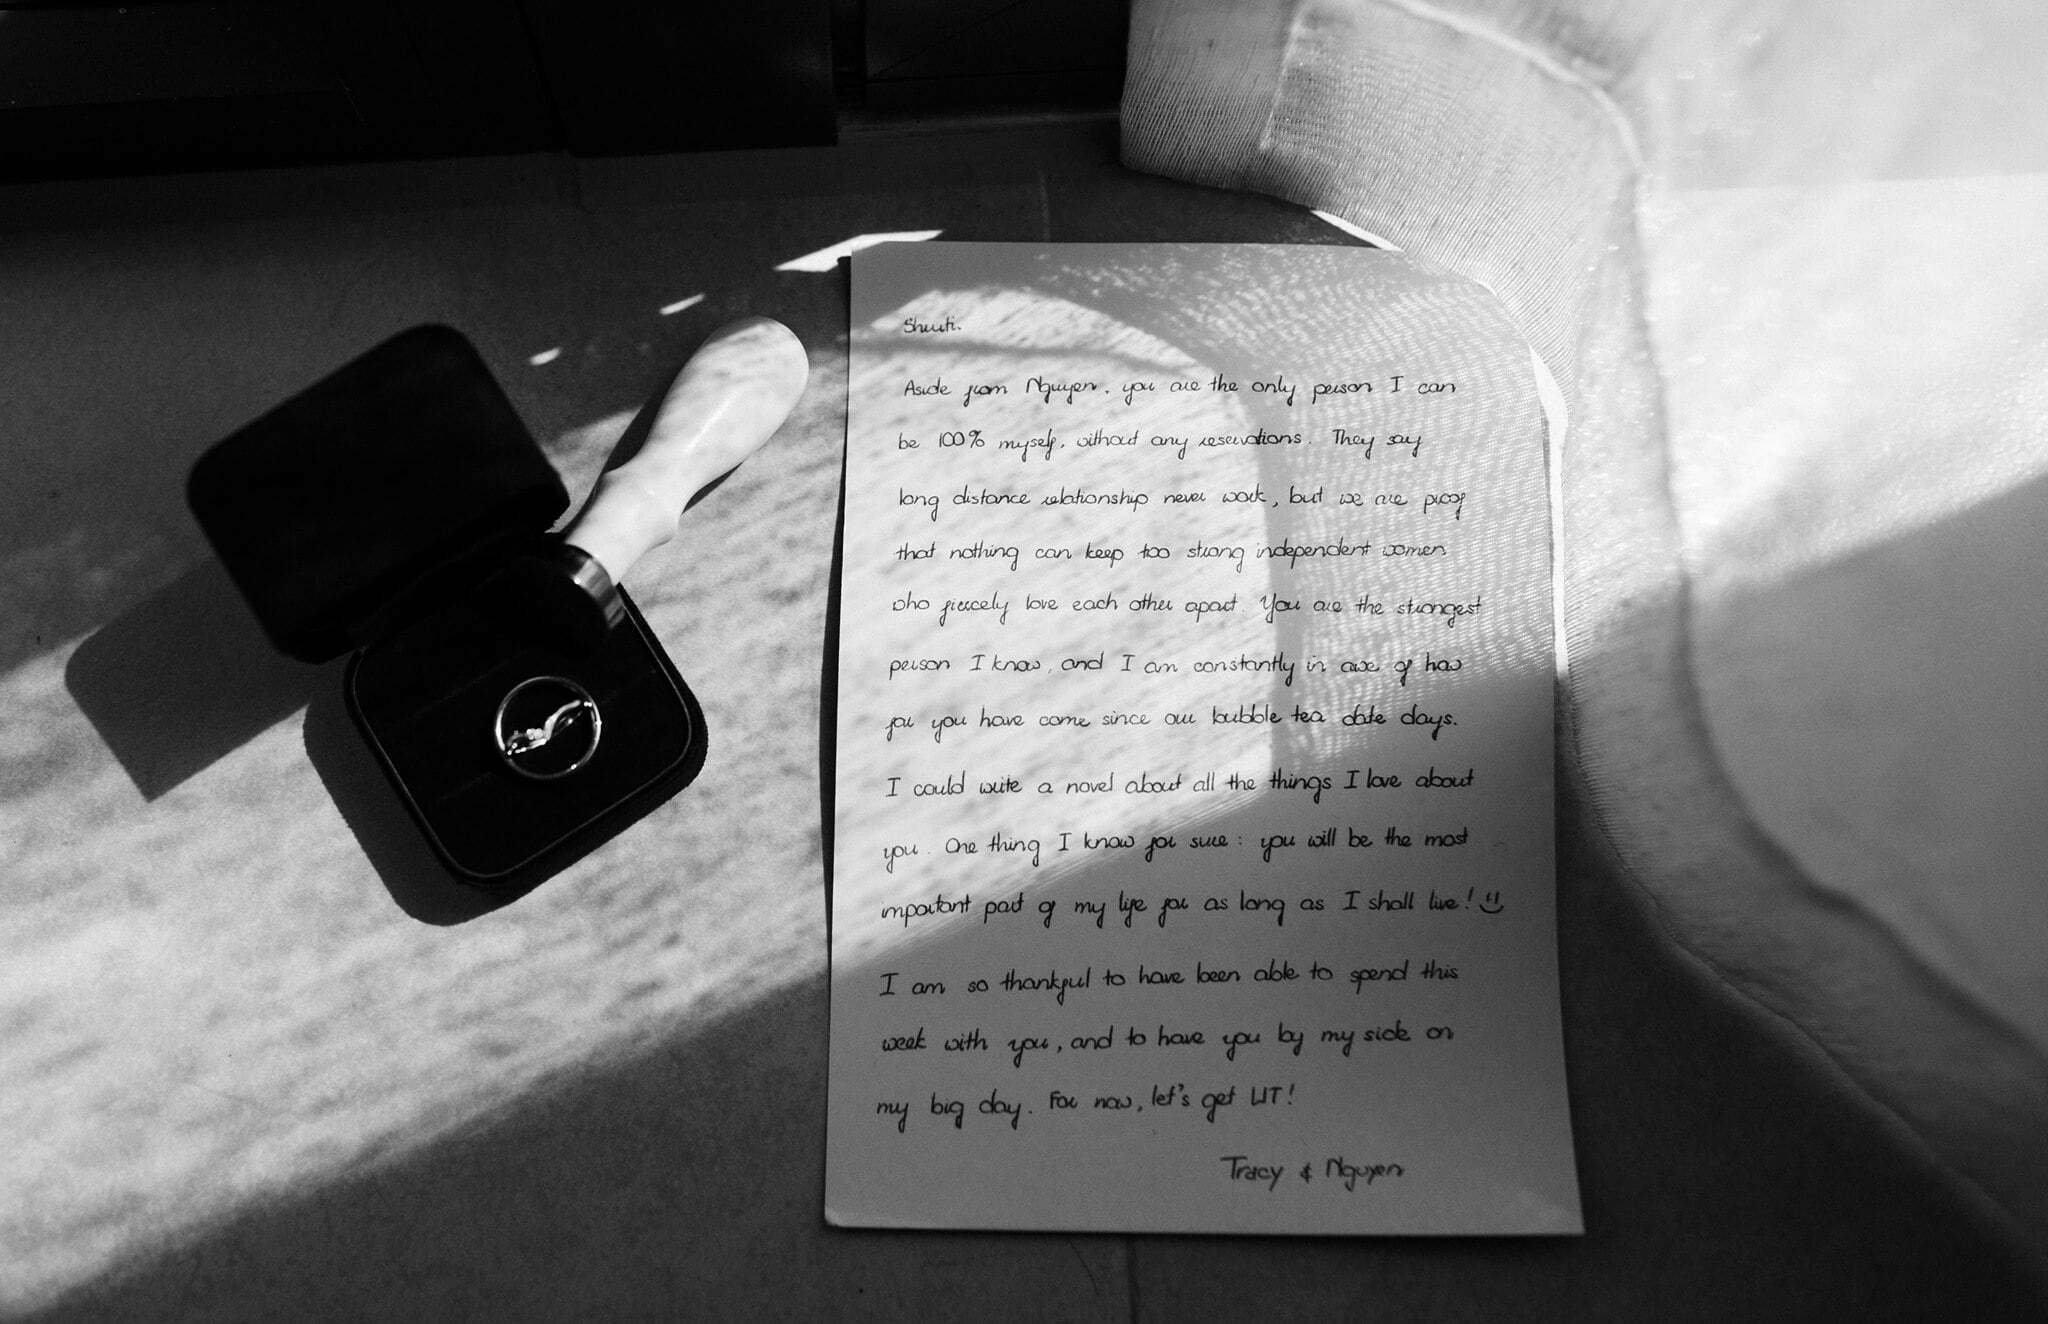 Shruti.
Aside from Nguyen, you are the only person I can
be 100% myself, without any reservations. They say
long distance relationship never work, but we are proof
that nothing can keep too strong independent women
who fiercely love each other apart. You are the strongest
person I know, and I am constantly in awe of how
far you have come since our bubble tea date days.
I could write a novel about all the things I love about
you. One thing I know for sure: you will be the most
important part of my life for as long as I shall live!
I am so thankful to have been able to spend this
week with you, and to have you by my side on
my big day. For now, let's get LIT!
Tracy & Nguyen